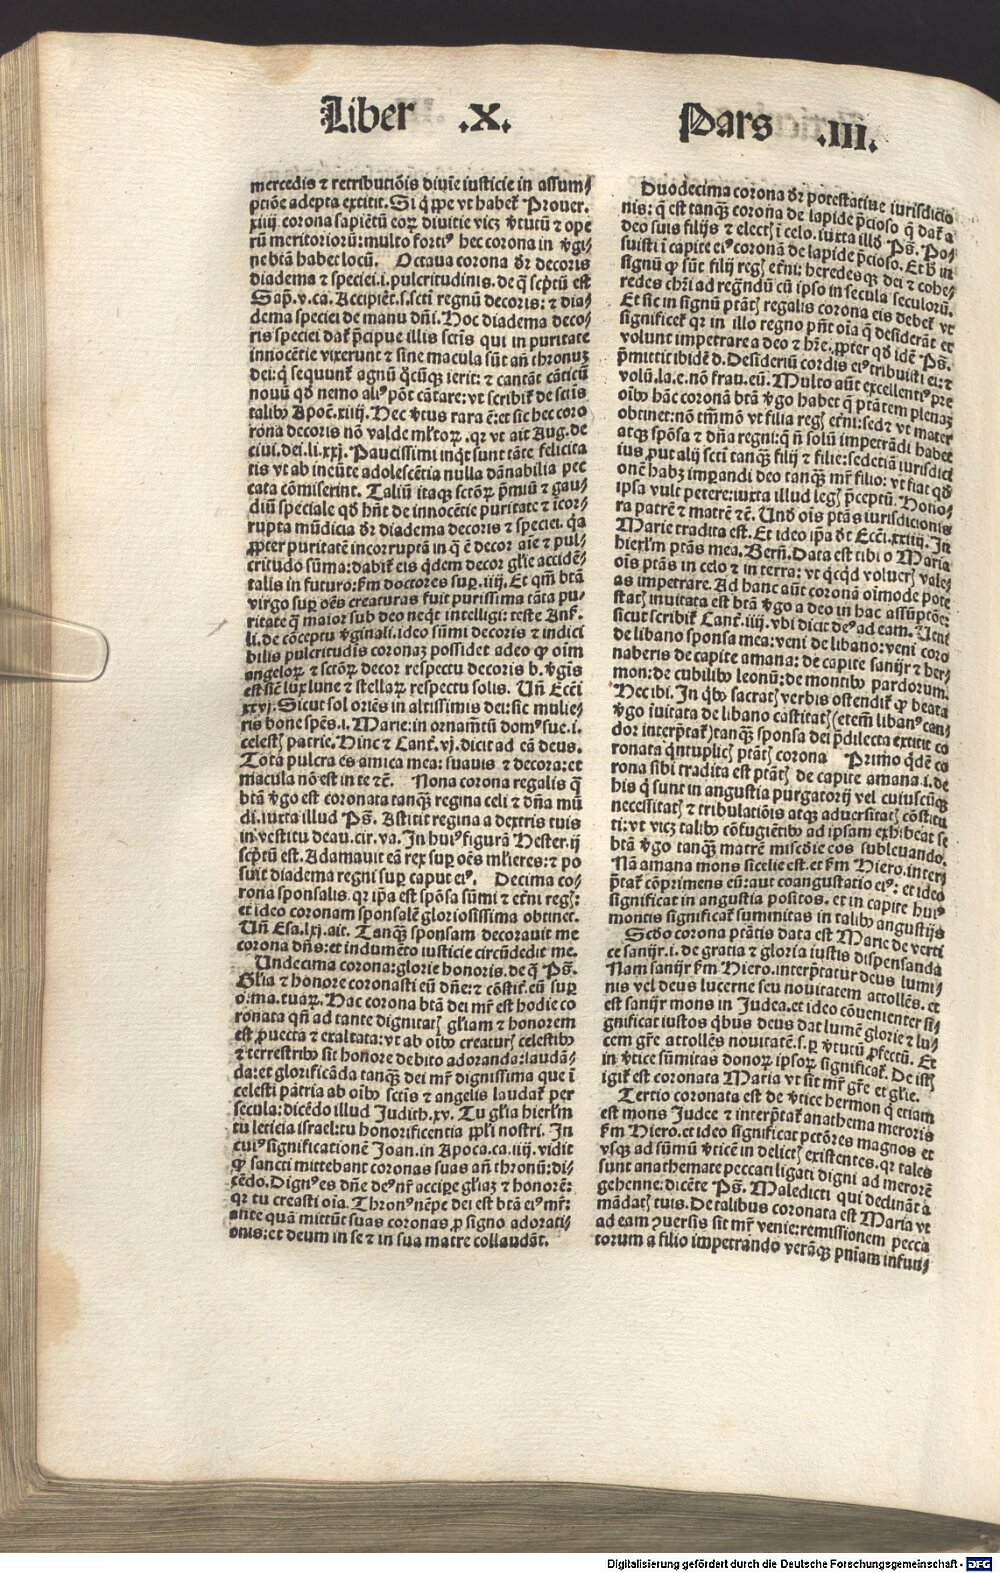 Liber .X. Pars .III.
mercedis ⁊ retributiõis diuine iusticie in assum/
ptiõe adepta extitit. Si q̃ppe vt habet᷒ Prouer.
xiiij corona sapiẽtũ eoꝝ diuitie vicꝫ v̾tutũ ⁊ ope
rũ meritoriorũ: multo forti᷒ hec corona in v̾gi/
ne btã habet locũ. Octaua corona dr̃ decoris
diadema ⁊ speciei .i. pulcritudinis. de q̃ scptũ est
Sap̃. v. ca. Accipiẽt .s. scti regnũ decoris: ⁊ dia/
dema speciei de manu dñi. Hoc diadema deco/
ris speciei dat᷒ p̃cipue illis sctis qui in puritate
innocẽtie vixerunt ⁊ sine macula sũt añ thronuꝫ
dei: q̃ sequunt᷒ agnũ q̃cũqꝫ ierit: ⁊ cantãt cãticũ
nouũ qď nemo ali᷒ põt cãtare: vt scribit᷒ de sctis
talibꝰ Apoc̃. xiiij. Hec v̾tus rara ẽ: et sic hec coro
rona decoris nõ valde ml̃toꝝ. qꝛ vt ait Aug. de
ciui. dei. li. xxj. Paucissimi inq̃t sunt tãte felicita
tis vt ab ineũte adolescẽtia nulla dãnabilia pec
cata cõmiserint. Taliũ itaqꝫ sctõꝝ p̃miũ ⁊ gau/
diũ speciale qď hñt de innocẽtie puritate ⁊ icor/
rupta mũdicia dr̃ diadema decoris ⁊ speciei. q̃a
ꝓpter puritatẽ incorruptã in q̃ ẽ decor aĩe ⁊ pul/
critudo sũma: dabit᷒ eis q̃dem decor gl̃ie accidẽ/
talis in futuro: ẜm doctores sup̃. iiij. Et qm̃ btã
virgo sup̃ oẽs creaturas fuit purissima tãta pu/
ritate q̃ maior sub deo neq̃t intelligi: teste Anẜ.
li. de cõceptu v̾ginali. ideo sũmi decoris ⁊ indici
bilis pulcritudis coronaꝫ possidet adeo ꝙ oĩm
angeloꝝ ⁊ sctõꝝ decor respectu decoris b. v̾gĩs
est sic̃ lux lune ⁊ stellaꝝ respectu solis. Uñ Ecc̃i
xxvj: Sicut sol oriẽs in altissimis dei: sic mulie/
ris bone spẽs .i. Marie: in ornamtũ dom᷒ sue .i.
celestꝭ patrie. Hinc ⁊ Cant̃. vj. dicit ad eã deus.
Tota pulcra es amica mea: suauis ⁊ decora: et
macula nõ est in te ⁊c̃. Nona corona regalis q̃
btã v̾go est coronata tanqꝫ regina celi ⁊ dñã mũ
di. iuxta illud Ps̃. Astitit regina a dextris tuis
in vestitu deau. cir. va. In hui᷒ figurã Hester. ij
scptũ est. Adamauit eã rex sup̃ oẽs ml̃ieres: ⁊ po
suit diadema regni sup̃ caput ei᷒. Decima co/
rona sponsalis. qꝛ ip̃a est spõsa sũmi ⁊ et̃ni regꝭ:
et ideo coronam sponsalẽ gloriosissima obtinet.
Uñ Esa. lxj. ait. Tanqꝫ sponsam decorauit me
corona dñs: et indumẽto iusticie circũdedit me.
Undecima corona: glorie honoris. de q̃ Ps̃.
Gl̃ia ⁊ honore coronasti eũ dñe: ⁊ cõstit᷒. eũ sup̃
o. ma. tuaꝝ. Hac corona btã dei mr̃ est hodie co
ronata qñ ad tante dignitatꝭ gl̃iam ⁊ honorem
est ꝓuecta ⁊ exaltata: vt ab oĩbꝰ creaturꝭ celestibꝰ
⁊ terrestribꝰ sit honore debito adoranda: laudã/
da: et glorificãda tanqꝫ dei mr̃ dignissima que ĩ
celesti patria ab oĩbꝰ sctis ⁊ angelis laudat᷒ per
secula: dicẽdo illud Judith. xv. Tu gl̃ia hierl̃m
tu leticia israel: tu honorificentia ppl̃i nostri. In
cui᷒ significationẽ Joan. in Apoca. ca. iiij. vidit
ꝙ sancti mittebant coronas suas añ thronũ: di/
cẽdo. Dign᷒ es dñe de᷒ nr̃ accip̃e gl̃iaꝫ ⁊ honorẽ:
qꝛ tu creasti oĩa. Thron᷒ nẽpe dei est btã ei᷒ mr̃:
ante quã mittũt suas coronas ꝓ signo adorati/
onis: et deum in se ⁊ in sua matre collaudãt.
Duodecima corona dr̃ potestatiue iurisdictio
nis: q̃ est tanqꝫ corona de lapide p̃cioso q̃ dat᷒ a
deo suis filijs ⁊ electꝭ ĩ celo. iuxta illď Ps̃. Po/
suisti ĩ capite ei᷒ coronã de lapide p̃cioso. Et h̾ in
signũ ꝙ sũt filij regꝭ et̃ni: heredesqꝫ dei ⁊ cohe/
redes chr̃i ad regñdũ cũ ipso in secula seculorũ.
Et sic in signũ ptãtꝭ regalis corona eis debet᷒ vt
significet᷒ qꝛ in illo regno pñt oĩa q̃ desiderãt et
volunt impetrare a deo ⁊ hr̃e. ꝓpter qď idẽ Ps̃.
p̃mittit ibidẽ d. Desideriũ cordis ei᷒ tribuisti ei: ⁊
volũ. la. e. nõ frau. eũ. Multo aũt excellenti᷒ pre
oĩbꝰ hãc coronã btã v̾go habet q̃ ptãtem plenaꝫ
obtinet: nõ tm̃mõ vt filia regꝭ et̃ni: sed ⁊ vt mater
atqꝫ spõsa ⁊ dñã regni: q̃ ñ solũ impetrãdi habet
ius ꝓut alij scti tanqꝫ filij ⁊ filie: sed etiã iurisdicti
onẽ habꝫ imp̃andi deo tanqꝫ mr̃ filio: vt fiat qď
ipsa vult petere: iuxta illud legꝭ p̃ceptũ. Hono/
ra patrẽ ⁊ matrẽ ⁊c̃. Unď oĩs ptãs iurisdictionis
Marie tradita est. Et ideo ip̃a dt̃ Ecc̃i. xxiiij. In
hierl̃m ptãs mea. Berñ. Data est tibi o Maria
oĩs ptãs in celo ⁊ in terra: vt q̃cqd volueris vale/
as impetrare. Ad hanc aũt coronã oĩmode pote
statꝭ inuitata est btã v̾go a deo in hac assũptõe:
sicut scribit᷒ Cant̃. iiij. vbi dicit de᷒ ad eam. Ueni
de libano sponsa mea: veni de libano: veni coro
naberis de capite amana: de capite sanijr ⁊ her/
mon: de cubilibꝰ leonũ: de montibꝰ pardorum.
Hec ibi. In q̃bꝰ sacratꝭ verbis ostendit᷒ ꝙ beata
v̾go ĩuitata de libano castitatꝭ (etem̃ liban᷒ can/
dor interp̃tat᷒) tanqꝫ sponsa dei p̃dilecta extitit co
ronata q̃ntuplici ptãtꝭ corona Primo q̃dẽ co
rona sibi tradita est ptãtꝭ de capite amana .i. de
his q̃ sunt in angustia purgatorij vel cuiuscũqꝫ
necessitatꝭ ⁊ tribulatiõis atqꝫ aduersitatꝭ cõstitu
ti: vt vicꝫ talibꝰ cõfugiẽtibꝰ ad ipsam exhibeat se
btã v̾go tanqꝫ matrẽ miscďie eos subleuando.
Nã amana mons sicelie est. et ẜm Hiero. inter/
p̃tat᷒ cõprimens eũ: aut coangustatio ei᷒: et ideo
significat in angustia positos. et in capite hui᷒
montis significat᷒ summitas in talibꝰ angustijs
Scďo corona ptãtis data est Marie de verti
ce sanijr .i. de gratia ⁊ gloria iustis dispensanda
Nam sanijr ẜm Hiero. interp̃tatur deus lumi/
nis vel deus lucerne seu nouitatem attollẽs. et
est sanijr mons in Judea. et ideo cõuenienter si/
gnificat iustos q̃bus deus dat lumẽ glorie ⁊ lu/
cem gr̃e attollẽs nouitatẽ .s. p̃ v̾tutũ ꝓfectũ. Et
in v̾tice sũmitas donoꝝ ipsoꝝ significat᷒. De istꝭ
igit᷒ est coronata Maria vt sit mr̃ gr̃e et gl̃ie.
Tertio coronata est de v̾tice hermon q̃ etiam
est mons Judee ⁊ interp̃tat᷒ anathema meroris
ẜm Hiero. et ideo significat pctõres magnos et
vsqꝫ ad sũmũ v̾ticẽ in delictꝭ existentes. qꝛ tales
sunt anathemate peccati ligati digni ad merorẽ
gehenne: dicẽte Ps̃. Maledicti qui declinãt a
mãdatꝭ tuis. De talibus coronata est Maria vt
ad eam ꝯuersis sit mr̃ venie: remissionem pecca
torum a filio impetrando verãqꝫ pñiam infun/
Digitalisierung gefördert durch die Deutsche Forschungsgemeinschaft - DFG